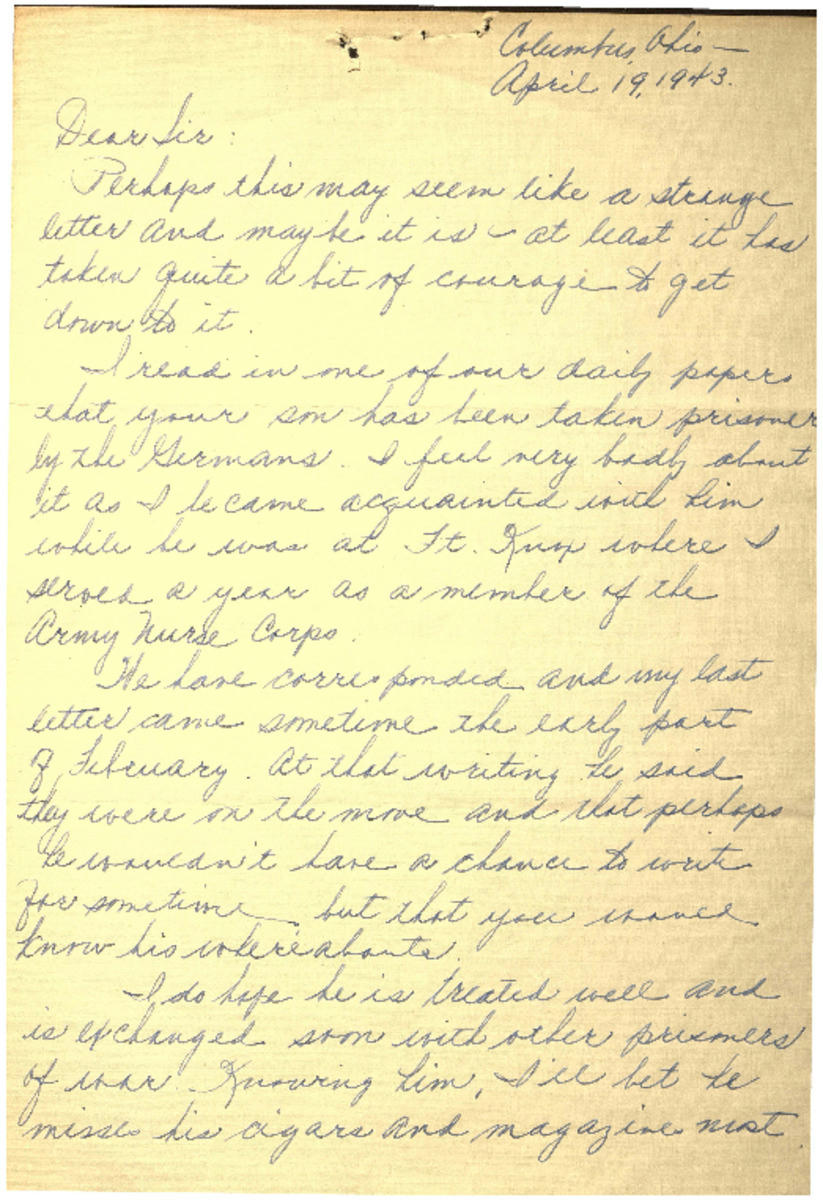 Columbus, Ohio —
April 19, 1943.
Dear Sir:
Perhaps this may seem like a strange
letter and maybe it is - at least it has
taken quite a bit of courage to get
down to it.
I read in one of our daily papers
that your son has been taken prisoner
by the Germans. I feel very badly about
it as I became acquainted with him
while he was at Ft. Knox where I
served a year as a member of the
Army Nurse Corps.
We have corresponded and my last
letter came sometime the early part
of February. At that writing he said
they were on the move and that perhaps
he wouldn't have a chance to write
for sometime but that you would
know his whereabouts.
I do hope he is treated well and
is exchanged soon with other prisoners
of war. Knowing him, I'll bet he
misses his cigars and magazines most